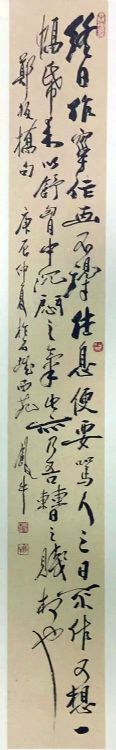 終日作字作画不得休息便要罵人三日不作又想一
幅帋来以舒胸中沉悶之氣此亦乃吾曹之賤相也
鄭板橋句 庚辰仲夏於西苑 鳳牛